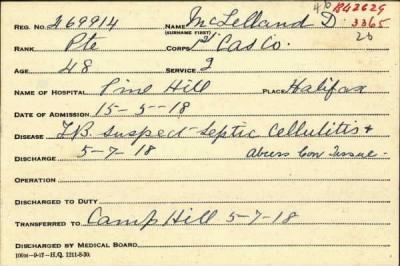 REG. NO. 269914 NAME McLelland D. 46 R42629
(SURNAME FIRST) 3365
RANK Pte CORPS 1st Cas Co. 26
AGE 48 SERVICE 2
NAME OF HOSPITAL Pine Hill PLACE Halifax
DATE OF ADMISSION 15-5-18
DISEASE T.B. suspect - Septic Cellulitis +
DISCHARGE 5-7-18 Abcess Con Tissue -
OPERATION
DISCHARGED TO DUTY
TRANSFERRED TO Camp Hill 5-7-18
DISCHARGED BY MEDICAL BOARD
100M-9-17-H.Q. 1211-8-30.